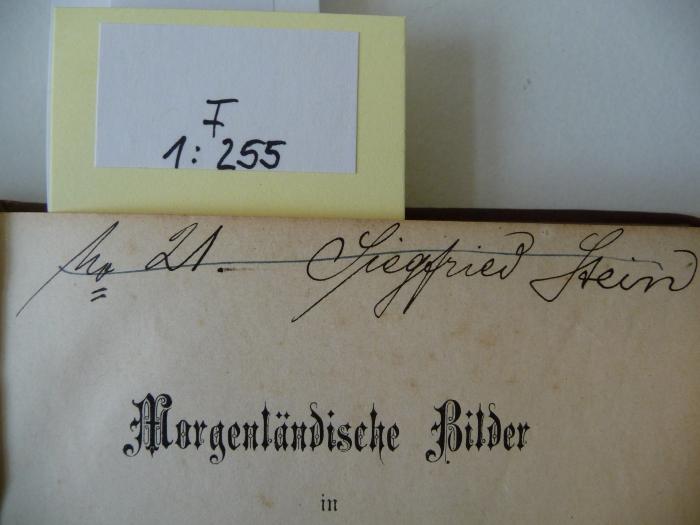 F
1: 255
No 21. Siegfried Stein
Morgenländische Bilder
in